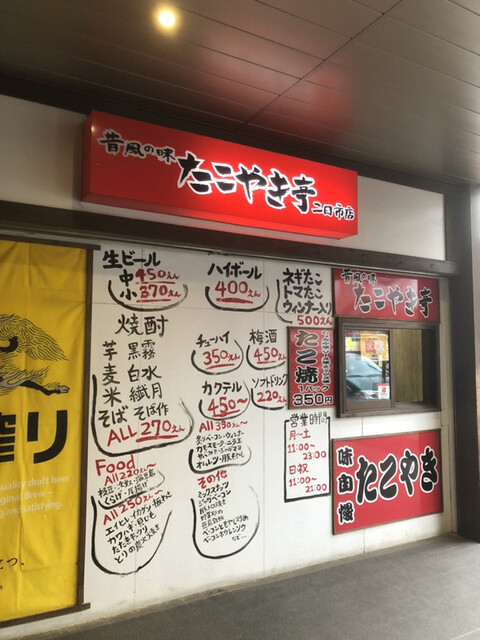 昔風の味 たこやき寺 二日市店
生ビール
中 450えん
小 370えん
ハイボール
400えん
ネギたこ
トマたこ
ウィンナー入り
500えん
昔風の味
たこやき寺
焼酎
芋 黒霧
麦 白水
米 繊月
そば そば作
ALL 270えん
チューハイ
350えん
梅酒
450えん
カクテル
450〜
ソフトドリンク
220えん
たこ焼
1パック
350円
営業時間
月〜土
11:00
〜
23:00
日祝
11:00
〜
21:00
味自慢
たこやき
Food
All 220えん〜
All 250えん〜
All 330えん〜
その他
ミックスナッツ
搾り
uality draft beer
iginal Brew –
ng and satisfying.